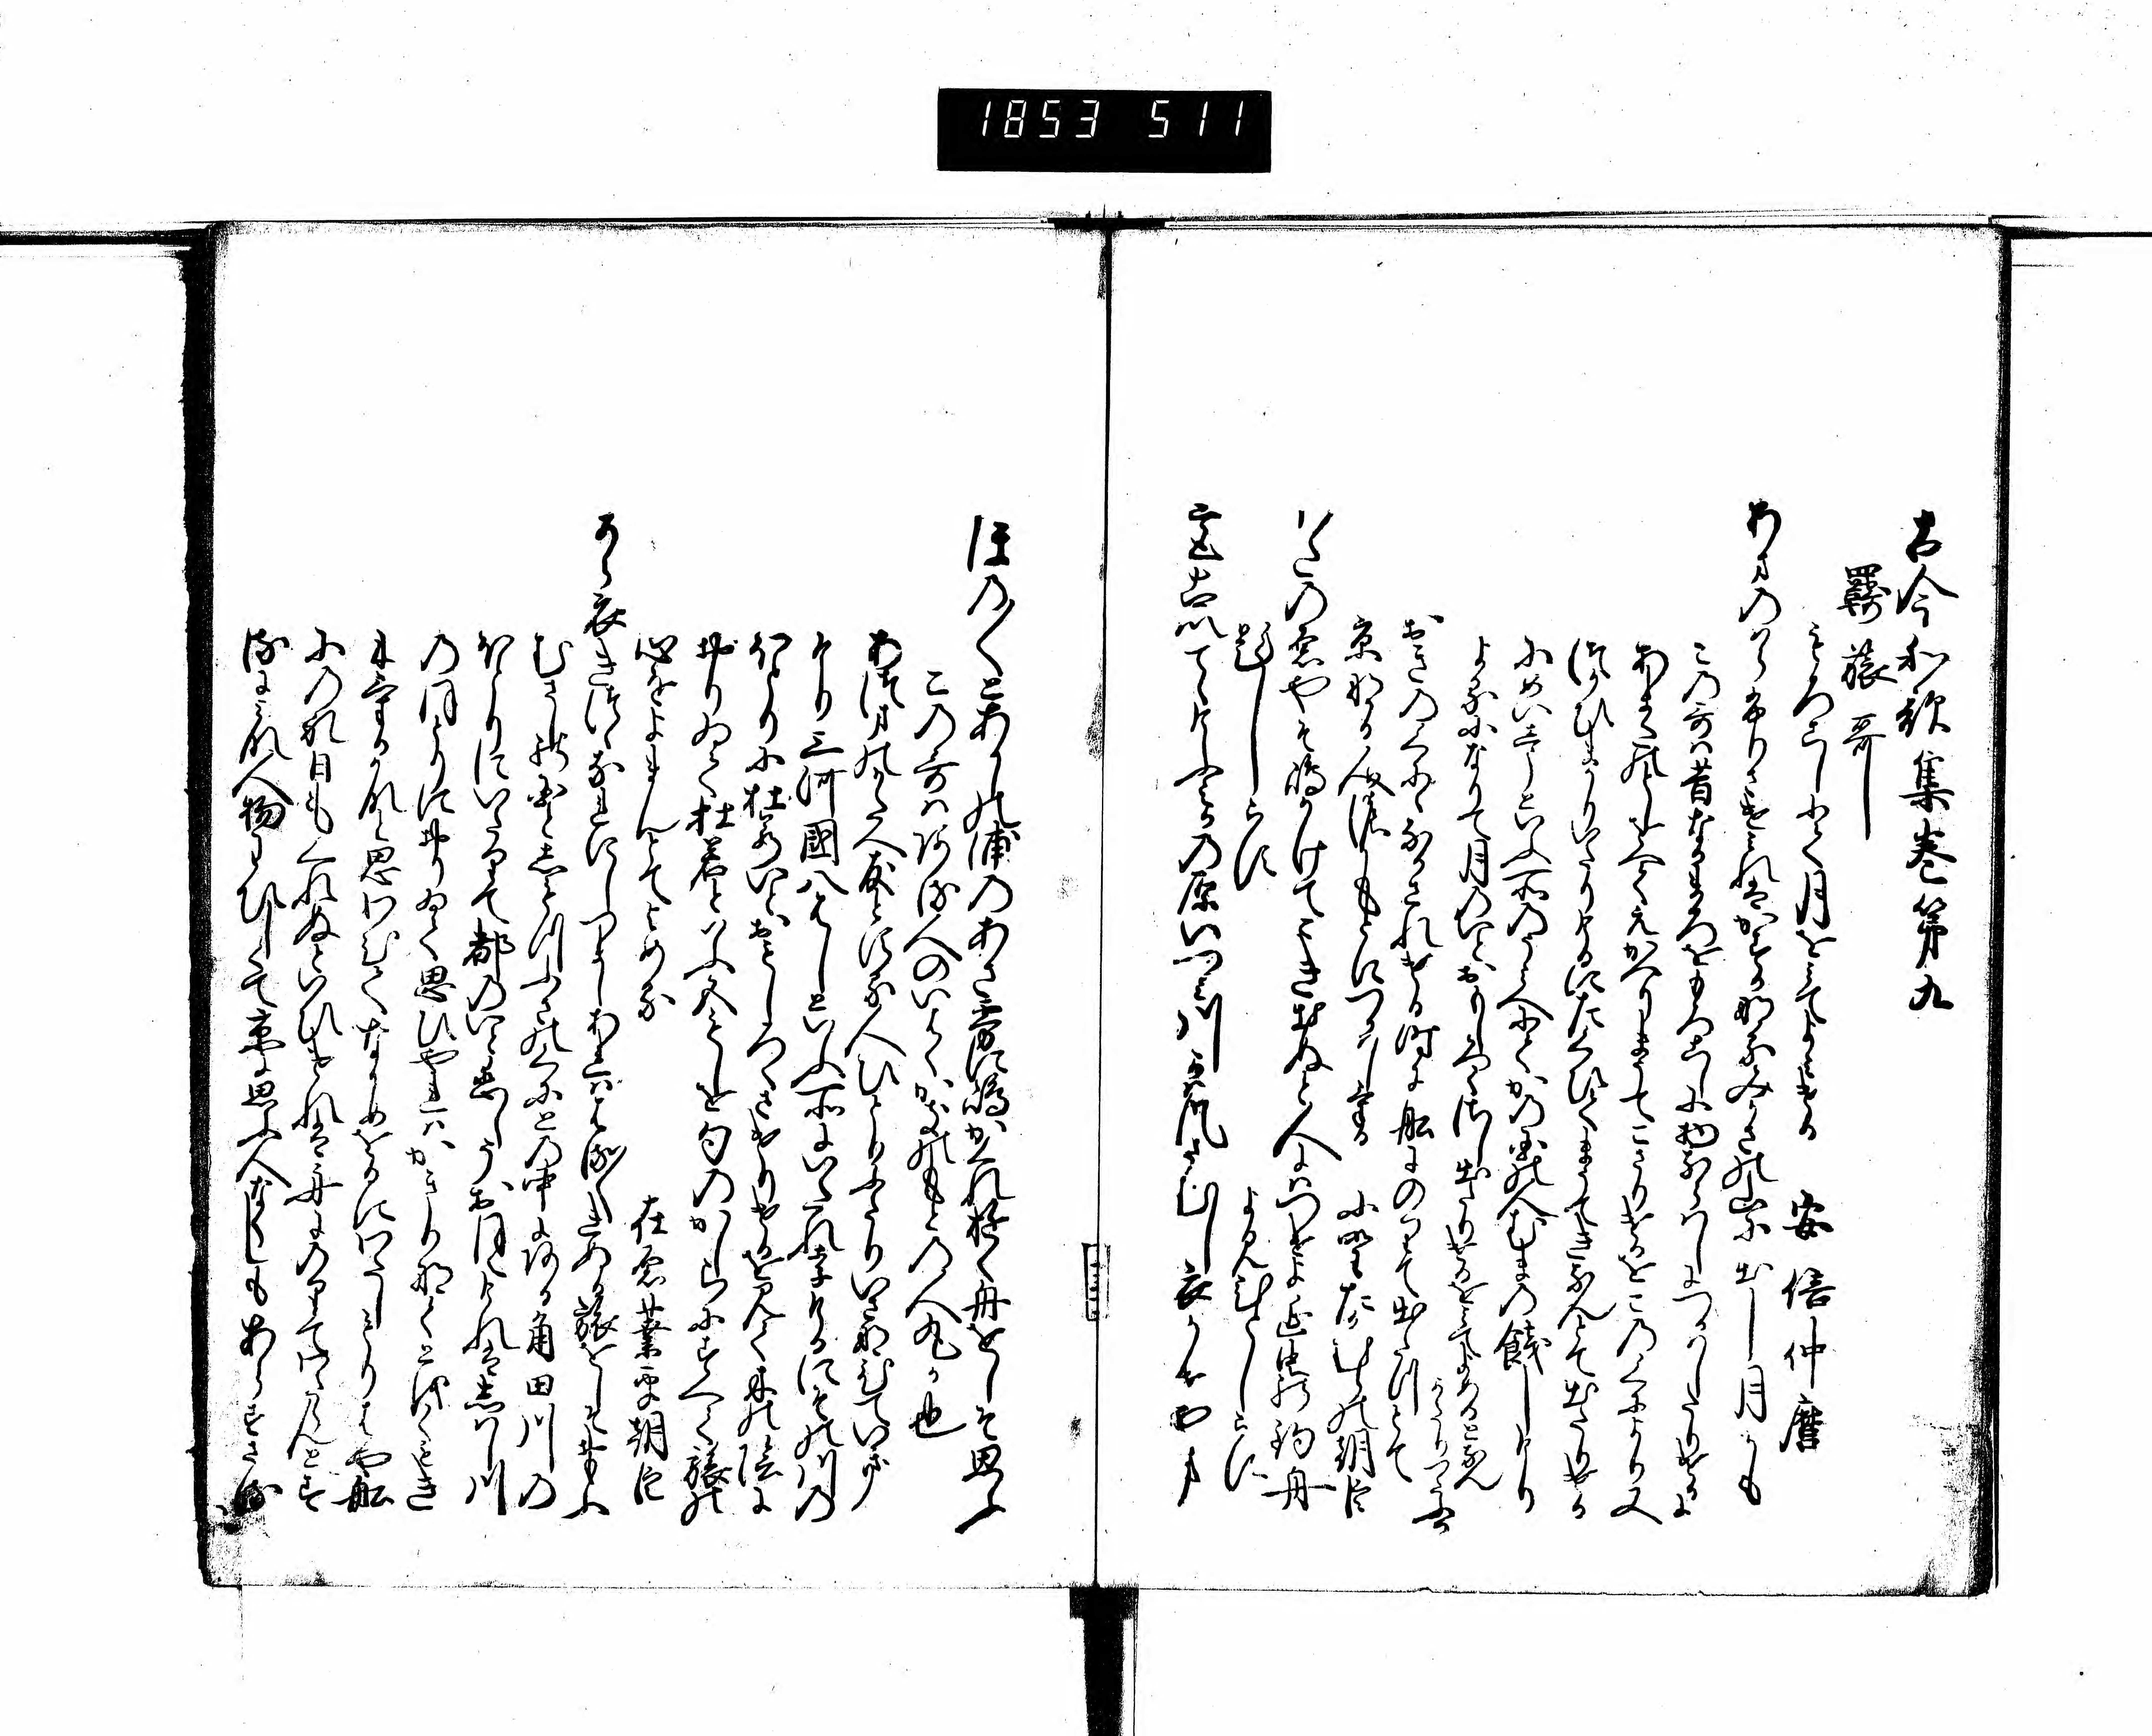 1853 511
古今和歌集巻第九
羇旅哥
もろこしにて月をみてよみける 安倍仲麿
あまのはらふりさけみれはかすかなるみかさの山に出し月かも
この哥は昔なかまろをもろこしに物ならはしにつかはしたりけるに
あまたのとしをへてえかへりまうてこさりけるをこのくにより又
つかひまかりいたりけるにたくひてまうてきなんとて出たりける
にめいしうといふ所のうみへにてかの国の人むまの餞しけり
よるになりて月のいとおもしろくさし出たりけるをみてよめるとなん
かたりつたふ
おきのくにになかされける時に舟にのりて出たつとて
京なる人のもとにつかはしける 小野たかむらの朝臣
わたの原やそ嶋かけてこき出ぬと人にはつけよ蜑の釣舟
題しらす よみ人しらす
都出て
けふみかの原いつみ川
川風さむし衣かせ山
ほの〱とあかしの浦のあさ霧に嶋かくれ行舟をしそ思ふ
この哥はある人のいはくかきのもとの人丸か也
あつまの方へ友とする人ひとりふたりいさなひていき
けり三河國八はしといふ所にいたれりけるにその川の
ほとりに杜若いとおもしろくさけりけるを見て木の陰に
おりゐて杜若といふ五もしを句のかしらにすへて旅の
心をよまんとてよめる
在原業平朝臣
から衣きつゝなれにしつましあれははる〱きぬる旅をしそ思ふ
むさしの国としもつふさのくにとの中にある角田川の
ほとりにいたりて都のいと恋しうおほえけれはしはし川
のほとりにおりゐて思ひやれはかきりなくとほくもき
にけるかなと思ひわひてなかめをるにわたしもりはや舟
にのれ日も暮ぬといひけれは舟にのりてわたらんとす
るにみな人物わひしくて京に思ふ人なくしもあらすさる